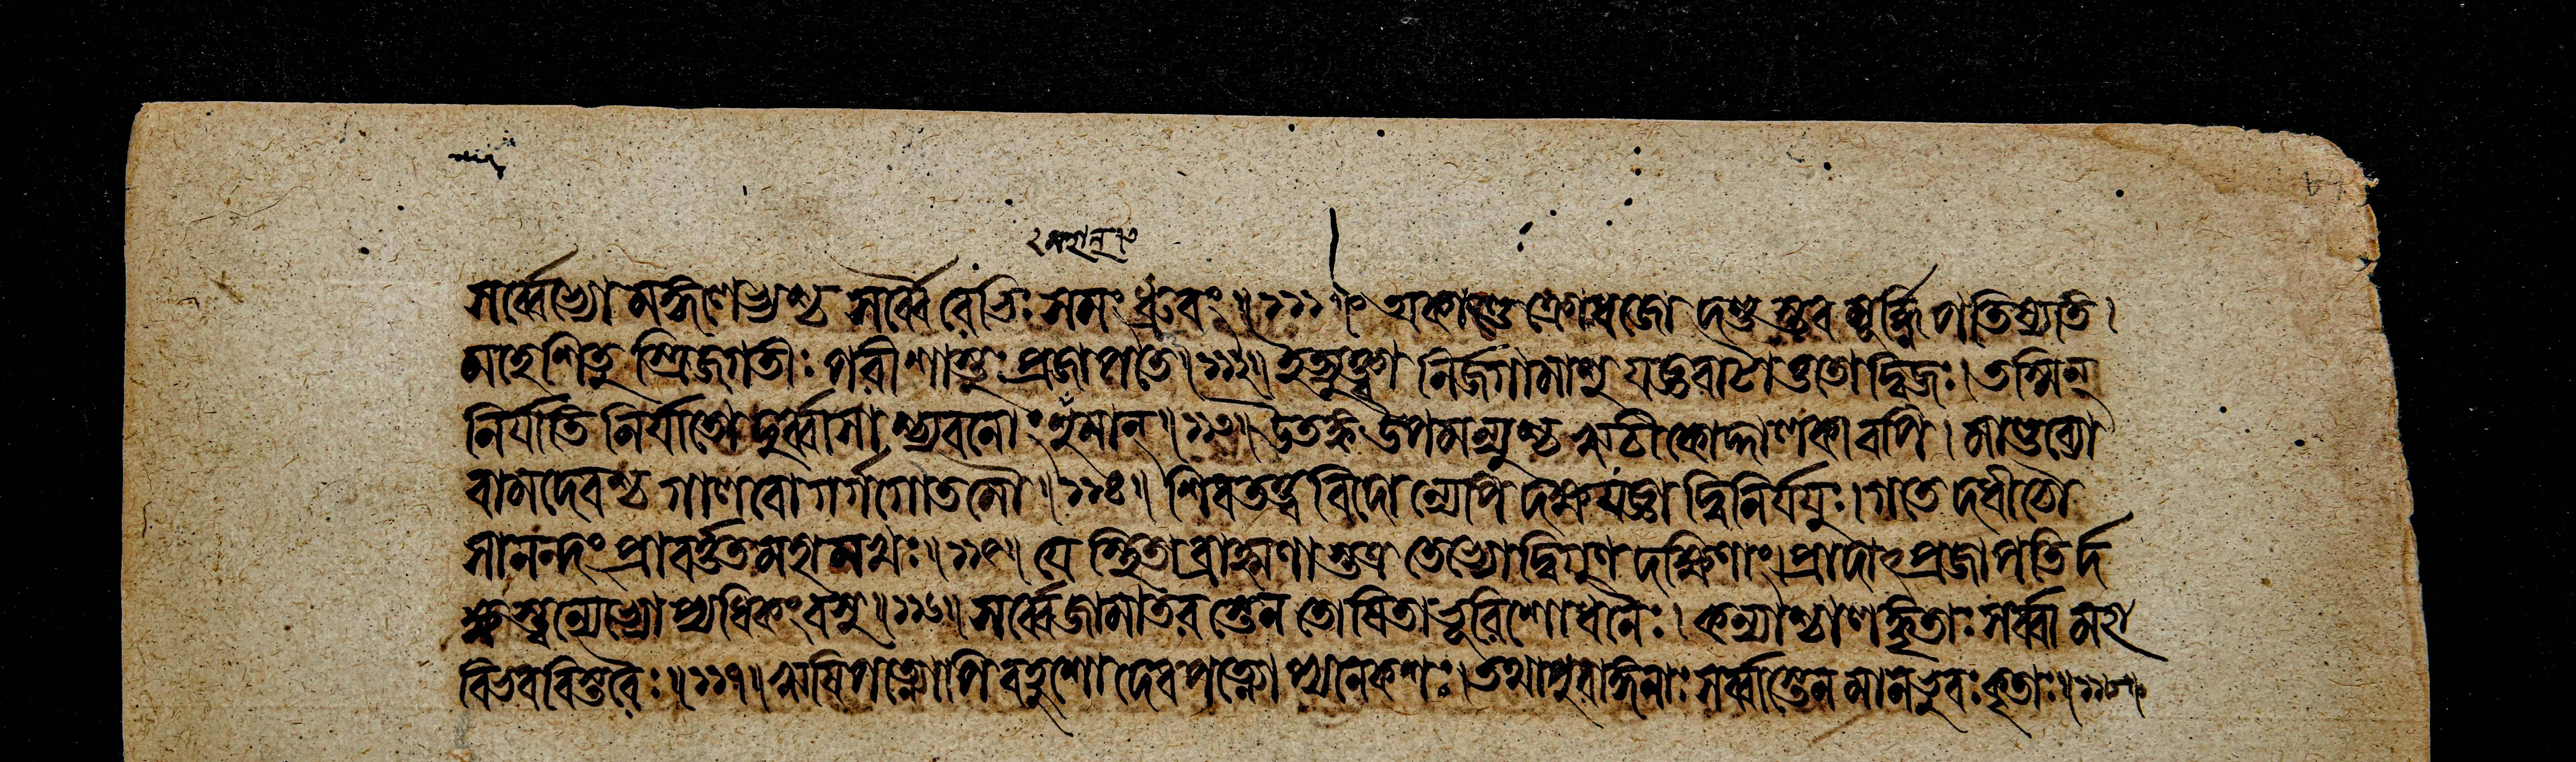 ২ মহান্ ৩
সর্ব্বেভ্যো মঙ্গণেভ্যশ্চ সর্ব্বৈ রেভিঃ সমং ধ্রুবং॥১১১॥ অকাণ্ডে ক্রোধজো দণ্ডস্তব মূর্দ্ধ্নি পতিষ্যতি।
মহেশিতু স্ত্রিজগতীং পরীশাস্তুঃ প্রজাপতে॥১১২॥ ইত্যুক্ত্বা নির্জগামাশু যজ্ঞবাটাত্ততো দ্বিজঃ। তস্মিন্
নির্যাতি নির্যাতো দুর্ব্বাসা শ্চ্যবনো হুমান্॥১১৩॥ উতঙ্ক উপমন্যুশ্চ ঋচীকোদ্দালকাবপি। মাণ্ডব্যো
বামদেবশ্চ গালবো গর্গগৌতমৌ॥১১৪॥ শিবতত্ত্ববিদোন্যেপি দক্ষযজ্ঞাদ্বিনির্যযুঃ। গতে দধীচৌ
সানন্দং প্রাবর্ত্তত মহামখঃ॥১১৫॥ যে স্থিতা ব্রাহ্মণাস্তত্র তেভ্যো দ্বিগুণ দক্ষিণাং। প্রাদাৎ প্রজাপতির্দ
ক্ষস্ত্বন্যেভ্যোপ্যধিকং বসু॥১১৬॥ সর্ব্বে জামাতরস্তেন তোষিতা ভূরিশো ধনৈঃ। কন্যাশ্চালঙ্কৃতাঃ সর্ব্বা মহা
বিভববিস্তরৈঃ॥১১৭॥ ঋষিপত্ন্যোপি বহুশো দেবপত্ন্যোপ্যনেকশঃ। তথা পুরাঙ্গনাঃ সর্ব্বাস্তেন মানভুবঃ কৃতাঃ॥১১৮॥